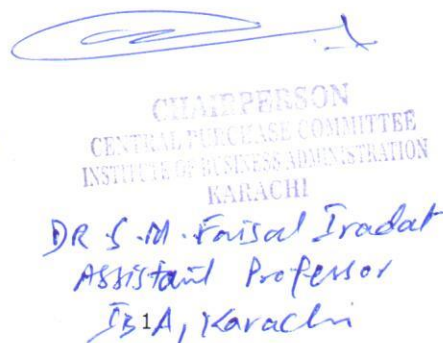 CHAIRPERSON
CENTRAL PURCHASE COMMITTEE
INSTITUTE OF BUSINESS ADMINISTRATION
KARACHI
DR S.M. Faisal Iradat
Assistant Professor
IB1A, Karachi